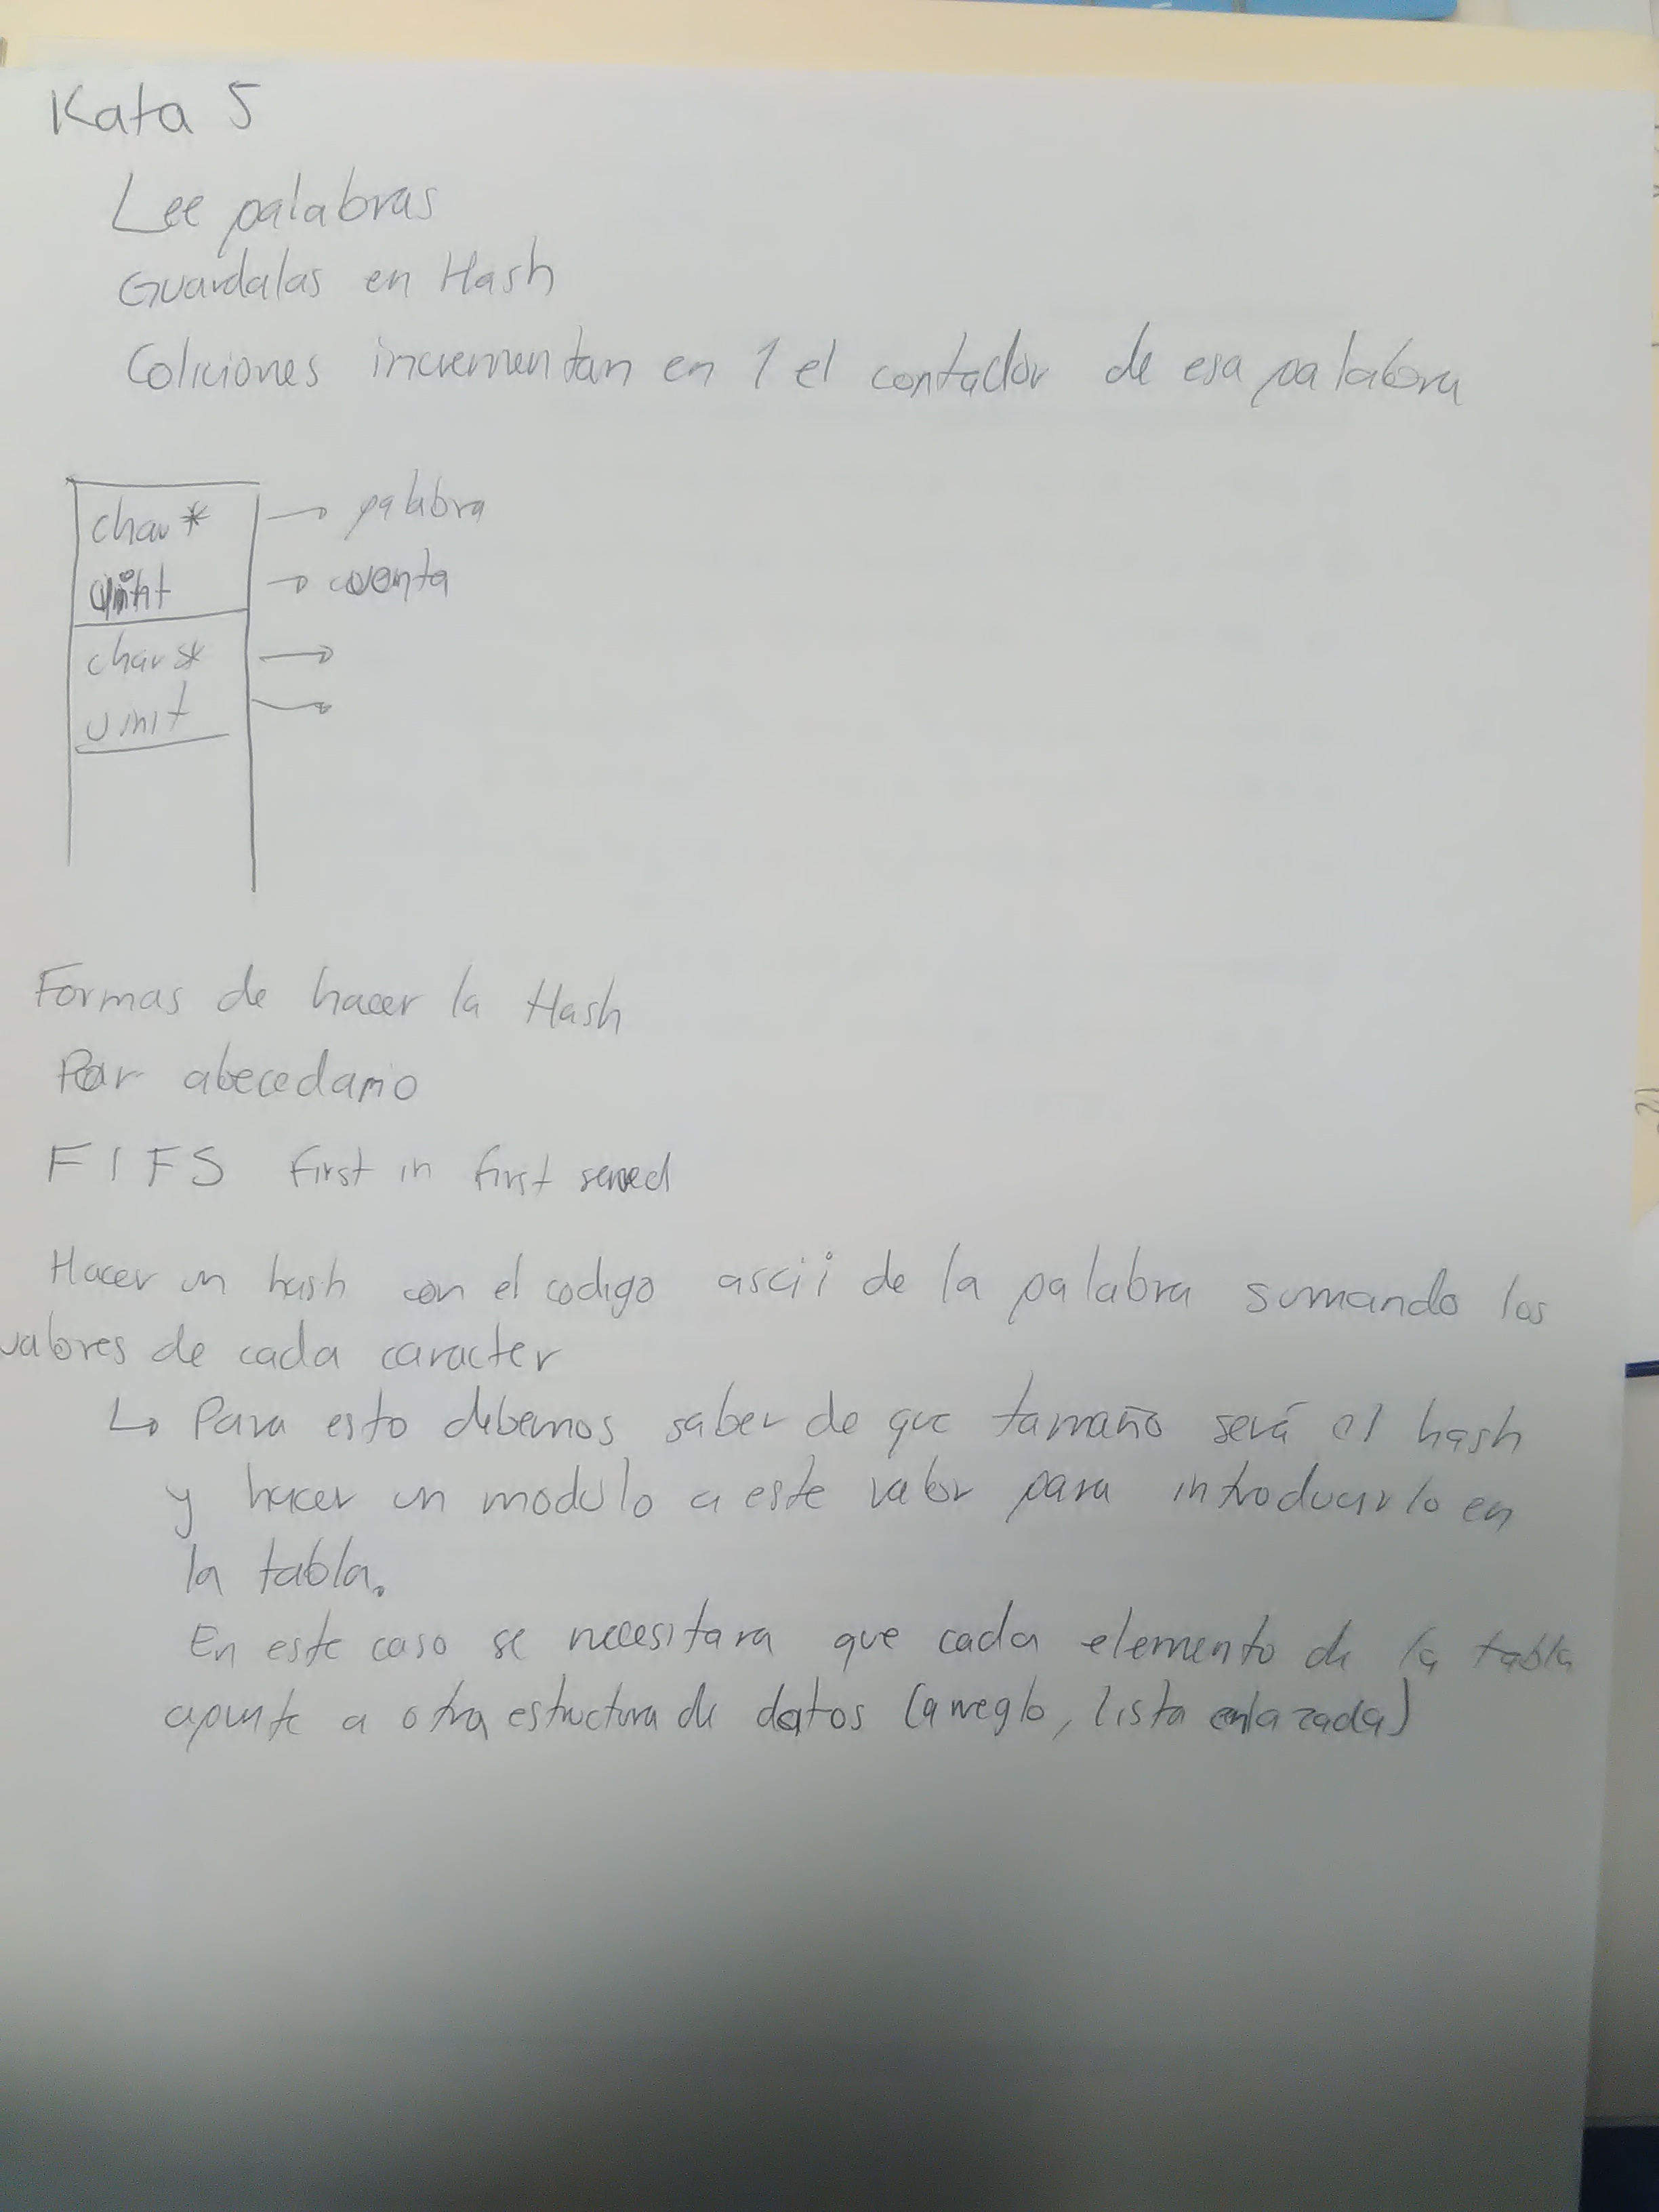 Kata 5
Lee palabras
Guardalas en Hash
Coliciones incrementan en 1 el contador de esa palabra
char* → palabra
uint → cuenta
char* →
uint →
Formas de hacer la Hash
Por abecedario
FIFS first in first served
Hacer un hash con el codigo ascii de la palabra sumando los
valores de cada caracter
↳ Para esto debemos saber de que tamaño será el hash
y hacer un modulo a este valor para introducirlo en
la tabla.
En este caso se necesitara que cada elemento de la tabla
apunte a otra estructura de datos (arreglo, lista enlazada)